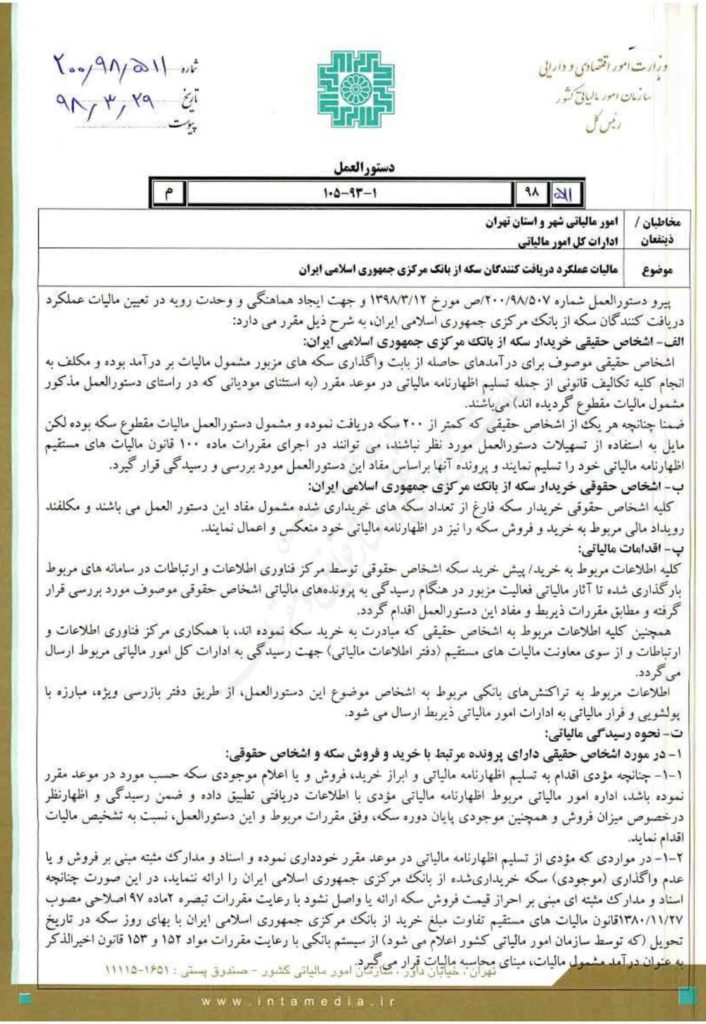 وزارت امور اقتصادی و دارایی
سازمان امور مالیاتی کشور
رئیس کل
شماره ۲۰۰/۹۸/۵۱۱
تاریخ ۹۸/۳/۲۹
پیوست
دستورالعمل
۵۱۱ ۹۸ ۱۰۵-۹۳-۱ م
مخاطبان / ذینفعان
امور مالیاتی شهر و استان تهران
ادارات کل امور مالیاتی
موضوع
مالیات عملکرد دریافت کنندگان سکه از بانک مرکزی جمهوری اسلامی ایران
پیرو دستورالعمل شماره ۲۰۰/۹۸/۵۰۷/ص مورخ ۱۳۹۸/۳/۱۲ و جهت ایجاد هماهنگی و وحدت رویه در تعیین مالیات عملکرد
دریافت کنندگان سکه از بانک مرکزی جمهوری اسلامی ایران، به شرح ذیل مقرر می دارد:
الف- اشخاص حقیقی خریدار سکه از بانک مرکزی جمهوری اسلامی ایران:
اشخاص حقیقی موصوف برای درآمدهای حاصله از بابت واگذاری سکه های مزبور مشمول مالیات بر درآمد بوده و مکلف به
انجام کلیه تکالیف قانونی از جمله تسلیم اظهارنامه مالیاتی در موعد مقرر (به استثنای مودیانی که در راستای دستورالعمل مذکور
مشمول مالیات مقطوع گردیده اند) می‌باشند.
ضمنا چنانچه هر یک از اشخاص حقیقی که کمتر از ۲۰۰ سکه دریافت نموده و مشمول دستورالعمل مالیات مقطوع سکه بوده لکن
مایل به استفاده از تسهیلات دستورالعمل مورد نظر نباشند، می توانند در اجرای مقررات ماده ۱۰۰ قانون مالیات های مستقیم
اظهارنامه مالیاتی خود را تسلیم نمایند و پرونده آنها براساس مفاد این دستورالعمل مورد بررسی و رسیدگی قرار گیرد.
ب- اشخاص حقوقی خریدار سکه از بانک مرکزی جمهوری اسلامی ایران:
کلیه اشخاص حقوقی خریدار سکه فارغ از تعداد سکه های خریداری شده مشمول مفاد این دستور العمل می باشند و مکلفند
رویداد مالی مربوط به خرید و فروش سکه را نیز در اظهارنامه مالیاتی خود منعکس و اعمال نمایند.
پ- اقدامات مالیاتی:
کلیه اطلاعات مربوط به خرید/ پیش خرید سکه اشخاص حقوقی توسط مرکز فناوری اطلاعات و ارتباطات در سامانه های مربوط
بارگذاری شده تا آثار مالیاتی فعالیت مزبور در هنگام رسیدگی به پرونده‌های مالیاتی اشخاص حقوقی موصوف مورد بررسی قرار
گرفته و مطابق مقررات ذیربط و مفاد این دستورالعمل اقدام گردد.
همچنین کلیه اطلاعات مربوط به اشخاص حقیقی که مبادرت به خرید سکه نموده اند، با همکاری مرکز فناوری اطلاعات و
ارتباطات و از سوی معاونت مالیات های مستقیم (دفتر اطلاعات مالیاتی) جهت رسیدگی به ادارات کل امور مالیاتی مربوط ارسال
می‌گردد.
اطلاعات مربوط به تراکنش‌های بانکی مربوط به اشخاص موضوع این دستورالعمل، از طریق دفتر بازرسی ویژه، مبارزه با
پولشویی و فرار مالیاتی به ادارات امور مالیاتی ذیربط ارسال می شود.
ت- نحوه رسیدگی مالیاتی:
۱- در مورد اشخاص حقیقی دارای پرونده مرتبط با خرید و فروش سکه و اشخاص حقوقی:
۱-۱- چنانچه مؤدی اقدام به تسلیم اظهارنامه مالیاتی و ابراز خرید، فروش و یا اعلام موجودی سکه حسب مورد در موعد مقرر
نموده باشد، اداره امور مالیاتی مربوط اظهارنامه مالیاتی مؤدی با اطلاعات دریافتی تطبیق داده و ضمن رسیدگی و اظهارنظر
درخصوص میزان فروش و همچنین موجودی پایان دوره سکه، وفق مقررات مربوط و این دستورالعمل، نسبت به تشخیص مالیات
اقدام نماید.
۱-۲- در مواردی که مؤدی از تسلیم اظهارنامه مالیاتی در موعد مقرر خودداری نموده و اسناد و مدارک مثبته مبنی بر فروش و یا
عدم واگذاری (موجودی) سکه خریداری‌شده از بانک مرکزی جمهوری اسلامی ایران را ارائه ننماید، در این صورت چنانچه
اسناد و مدارک مثبته ای مبنی بر احراز قیمت فروش سکه ارائه یا واصل نشود با رعایت مقررات تبصره ۲ماده ۹۷ اصلاحی مصوب
۱۳۸۰/۱۱/۲۷قانون مالیات های مستقیم تفاوت مبلغ خرید از بانک مرکزی جمهوری اسلامی ایران با بهای روز سکه در تاریخ
تحویل (که توسط سازمان امور مالیاتی کشور اعلام می شود) از سیستم بانکی با رعایت مقررات مواد ۱۵۲ و ۱۵۳ قانون اخیرالذکر
به عنوان درآمد مشمول مالیات، مبنای محاسبه مالیات قرار می‌گیرد.
تهران، خیابان داور، سازمان امور مالیاتی کشور - صندوق پستی : ۱۶۵۱-۱۱۱۱۵
www.intamedia.ir